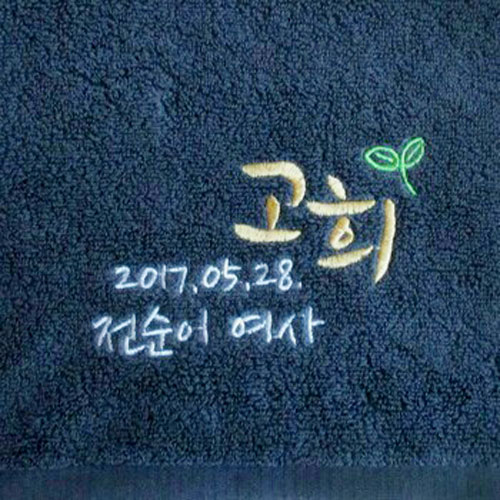 고희
2017.05.28.
전순어 여사